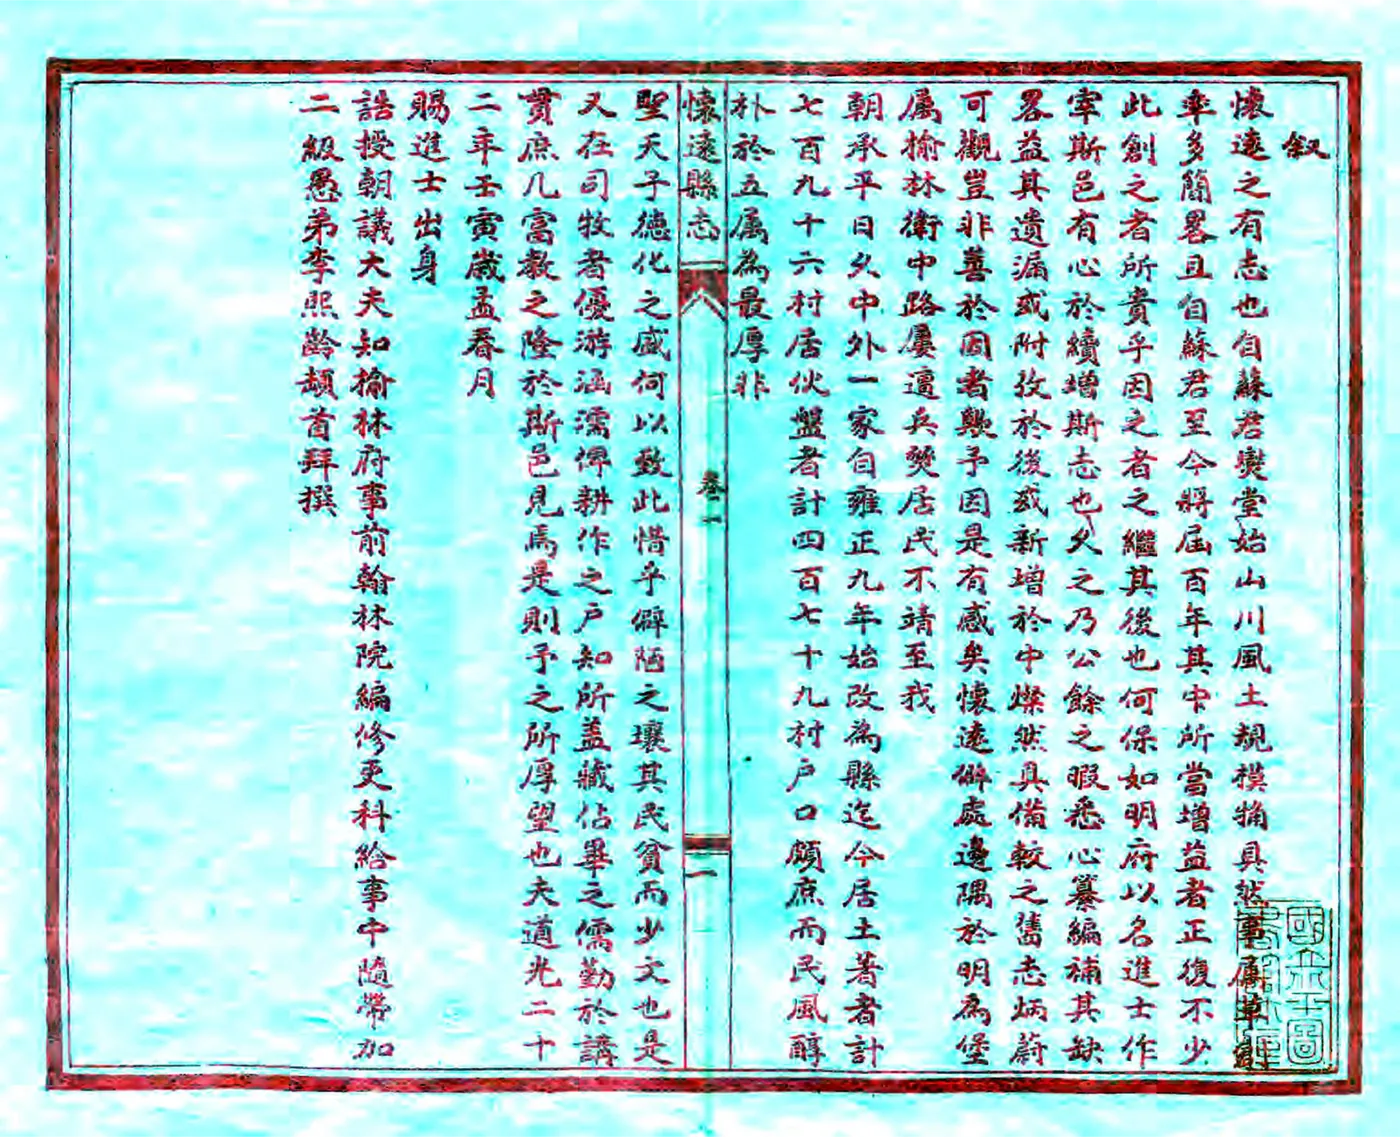 叙
懷遠之有志也自蘇君爕堂始山川風土規模觕具然事属草創
率多簡畧且自蘇君至今將屆百年其中所當增益者正復不少
此創之者所貴乎因之者之繼其後也何保如明府以名進士作
宰斯邑有心於續增斯志也久之乃公餘之暇悉心纂編補其缺
畧益其遺漏或附攷於後或新增於中燦然具備較之舊志炳蔚
可觀豈非善於因者歟予因是有感矣懷遠僻處邊隅於明為堡
属榆林衛中路屢遭兵燹居民不靖至我
朝承平日久中外一家自雍正九年始改為縣迄今居土著者計
七百九十六村居伙盤者計四百七十九村戶口頗庶而民風醇
朴於五属為最厚非
懷遠縣志
卷一
一
聖天子德化之盛何以致此惜乎僻陋之壤其民貧而少文也是
又在司牧者優游涵濡俾耕作之戶知所盖藏佔畢之儒勤於講
貫庶几富教之隆於斯邑見焉是則予之所厚望也夫道光二十
二年壬寅歲孟春月
賜進士出身
誥授朝議大夫知榆林府事前翰林院編修吏科給事中隨帶加
二級愚弟李熙齡頓首拜撰
國立北平圖書館收藏